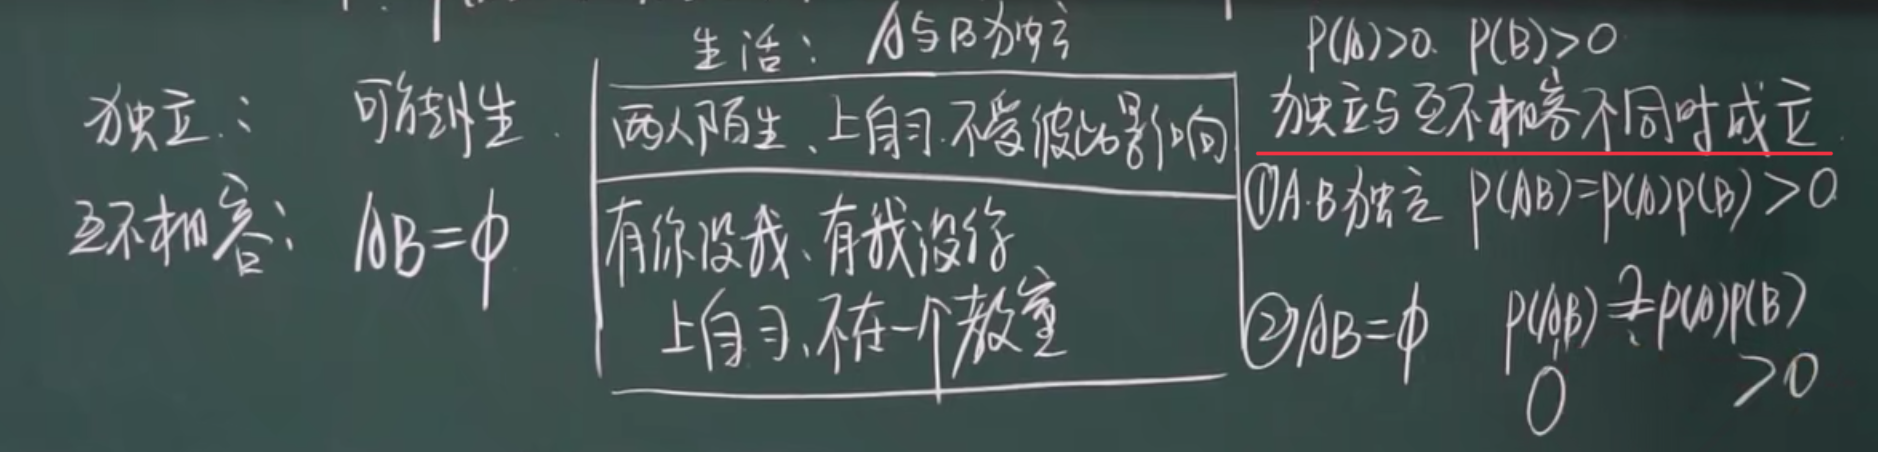 独立：可能性
互不相容：AB=φ
生活：A与B独立
两人陌生、上自习.不受彼此影响
有你没我、有我没你
上自习、不在一个教室
P(A)>0. P(B)>0
独立与互不相容不同时成立
①A.B独立 P(AB)=P(A)P(B)>0
②AB=φ P(AB)≠P(A)P(B)
0 >0